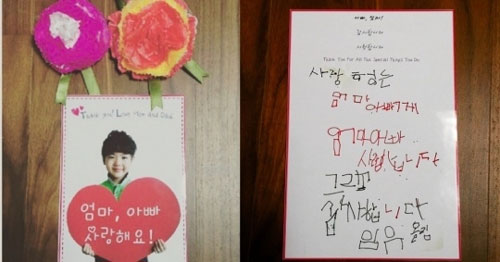 Thank you! Love Mom and Dad
엄마, 아빠
사랑해요!
감사합니다
사랑합니다
Thank You For All The Special Things You Do
사랑하는
엄마아빠에게
엄마아빠
사랑합니다
그리고
감사합니다
올림